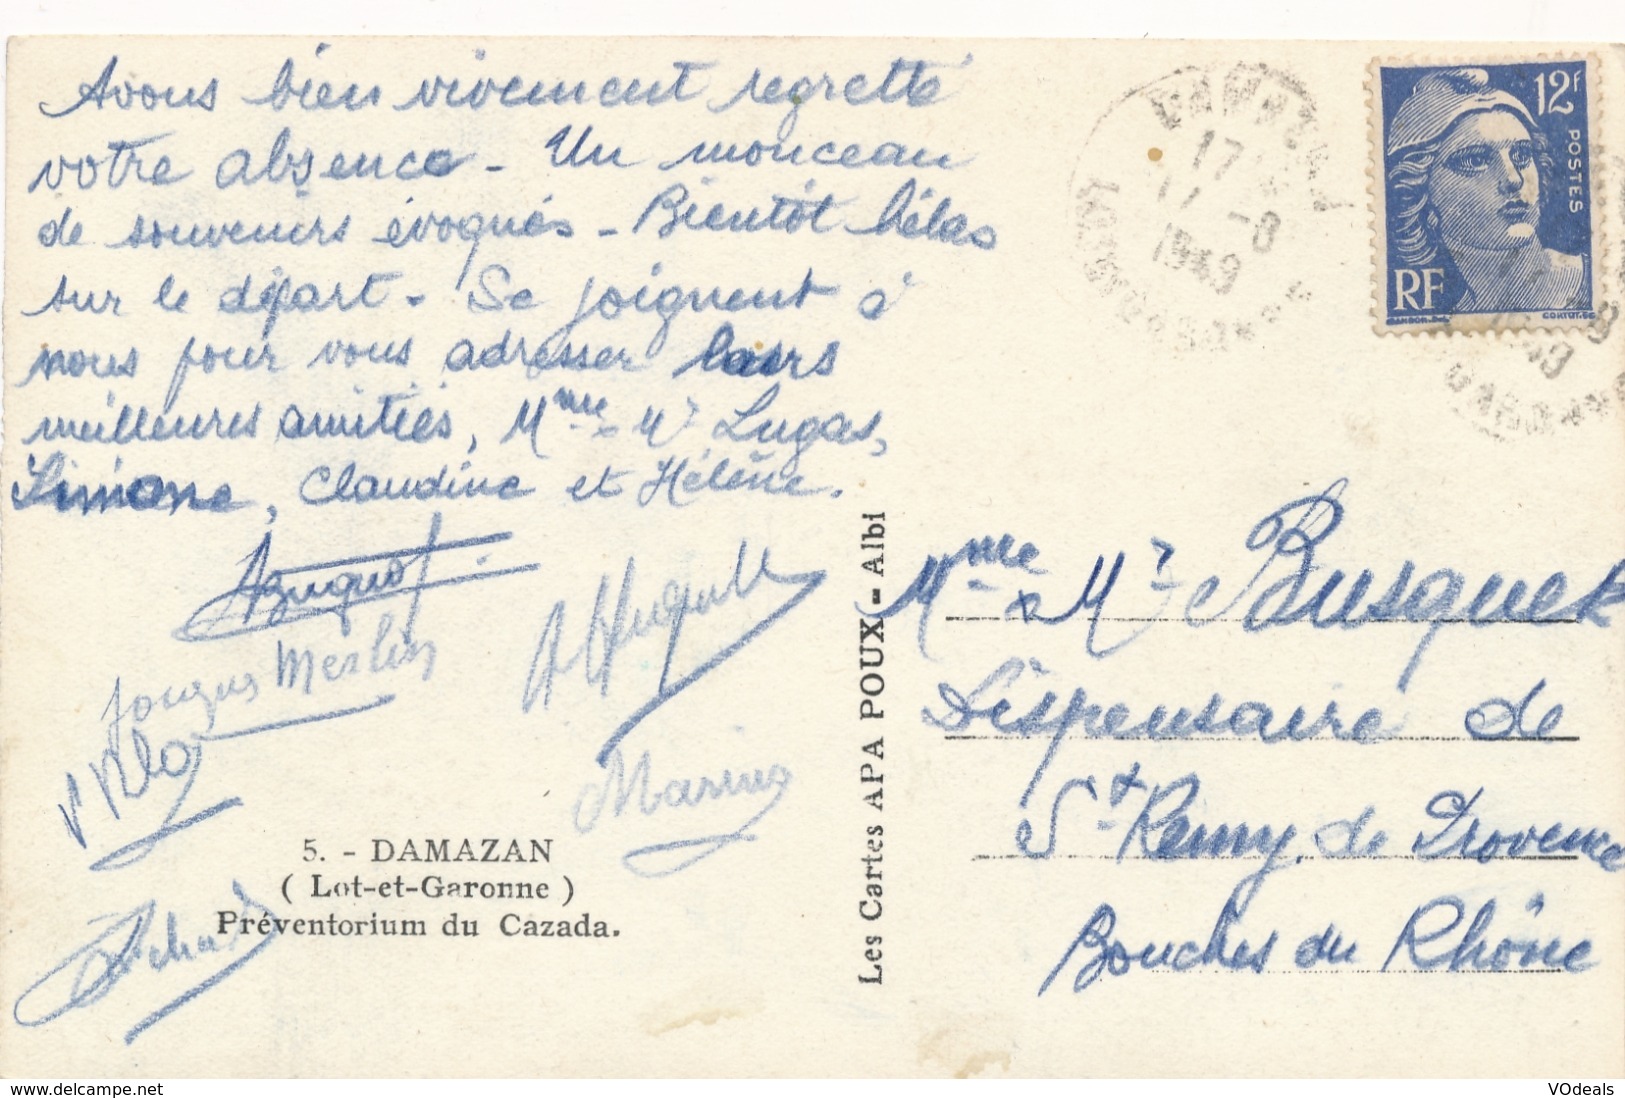 Avons bien vivement regretté
votre absence - Un monceau
de souvenirs évoqués - Bientôt hélas
sur le départ - Se joignent à
nous pour vous adresser leurs
meilleures amitiés, Mme Mr Lugas,
Simone, Claudine et Hélène.
Jacques Merlin
Marino
5. - DAMAZAN
( Lot-et-Garonne )
Préventorium du Cazada.
Les Cartes APA POUX - Albi
1949
12F
POSTES
RF
GANDON
CORTOT.SC
Mme & Mr Busquet
Dispensaire de
St Remy de Provence
Bouches du Rhône
www.delcampe.net
VOdeals